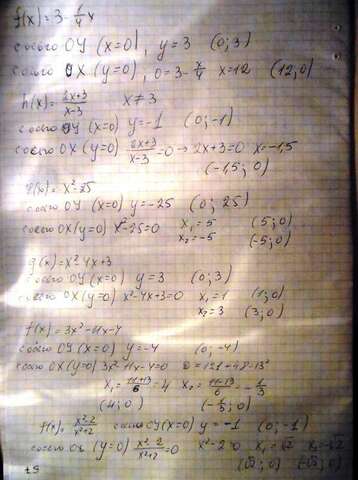 f(x)=3-1/4x
с осью OY (x=0), y=3 (0;3)
с осью OX (y=0), 0=3-x/4 x=12 (12;0)
h(x)=2x+3/x-3 x≠3
с осью OY (x=0) y=-1 (0;-1)
с осью OX (y=0) 2x+3/x-3=0→2x+3=0 x=-1,5
(-1,5; 0)
φ(x)=x²-25
с осью OY (x=0) y=-25 (0; 25)
с осью OX (y=0) x²-25=0 x₁=5 (5;0)
x₂=-5 (-5;0)
g(x)=x²-4x+3
с осью OY (x=0) y=3 (0;3)
с осью OX (y=0) x²-4x+3=0 x₁=1 (1;0)
x₂=3 (3;0)
f(x)=3x²-11x-4
с осью OY (x=0) y=-4 (0;-4)
с осью OX (y=0) 3x²-11x-4=0 D=121+48=13²
x₁=11+13/6=4 x₂=11-13/6=-1/3
(4;0) (-1/3;0)
f(x)=x²-2/x²+2 с осью OY (x=0) y=-1 (0;-1)
с осью OX (y=0) x²-2/x²+2=0 x²-2=0 x₁=√2 x₂=-√2
(√2;0) (-√2;0)